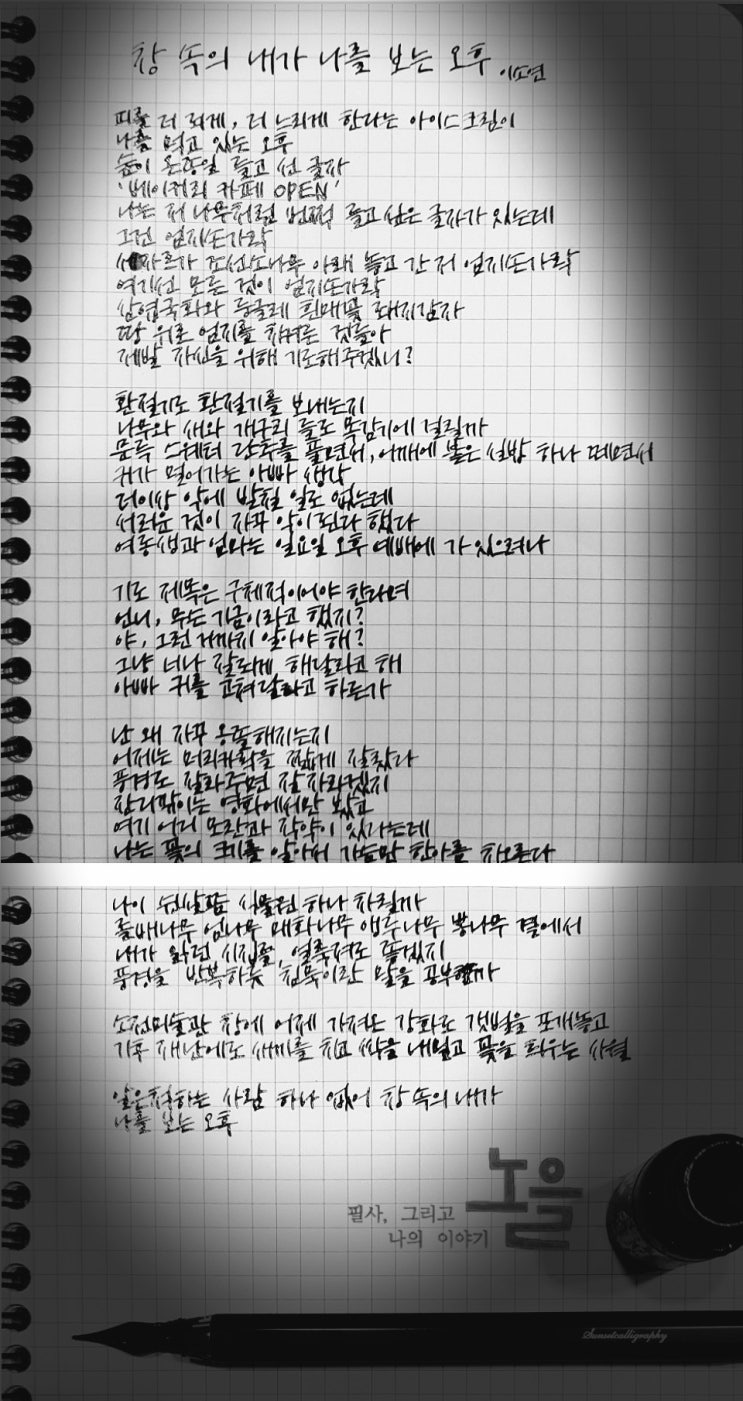 창 속의 내가 나를 보는 오후 이소연
피를 더 희게, 더 느리게 한다는 아이스크림이
나를 먹고 있는 오후
숲이 온종일 들고 선 글자
'베이커리 카페 OPEN'
나는 저 나무처럼 번쩍 들고 싶은 글자가 있는데
그건 엄지손가락
세자르가 조선소나무 아래 놓고 간 저 엄지손가락
여기선 모든 것이 엄지손가락
삼엽국화와 둥글레 흰매꽃 돼지감자
땅 위로 엄지를 치켜든 것들아
제발 자신을 위해 기도해주겠니?
환절기도 환절기를 보내는지
나무와 새와 개구리 들도 독감기에 걸릴까
문득 스웨터 단추를 풀면서, 어깨에 붙은 실밥 하나 떼면서
귀가 멀어가는 아빠 생각
더이상 약에 받칠 일도 없는데
서러운 것이 자꾸 약이 된다 했다
여동생과 엄마는 일요일 오후 예배에 가 있으려나
기도 제목은 구체적이어야 한다며
언니, 무슨 기금이라고 했지?
야, 그런 거까지 알아야 해?
그냥 너나 잘되게 해달라고 해
아빠 귀를 고쳐달라고 하든가
난 왜 자꾸 옹졸해지는지
어제는 머리카락을 짧게 잘랐다
풍경도 잘라주면 잘 자라겠지
잔디깎이는 영화에서만 봤고
여기 어디 모란과 작약이 있다는데
나는 꽃의 크기를 알아서 가늠만 한아름 차오른다
나이 쉰살쯤 식물원 하나 차릴까
돌배나무 엄나무 매화나무 앵두나무 뽕나무 곁에서
내가 읽던 시집를, 얼룩져도 좋겠지
풍경을 반복하듯 침묵이란 말을 공부할까
소전미술관 창에 어제 가져온 강화도 갯벌을 포개놓고
기후 재난에도 새끼를 치고 싹을 내밀고 꽃을 틔우는 사월
알은척하는 사람 하나 없이 창 속의 내가
나를 보는 오후
필사, 그리고
나의 이야기
노을
Sunsetcalligraphy